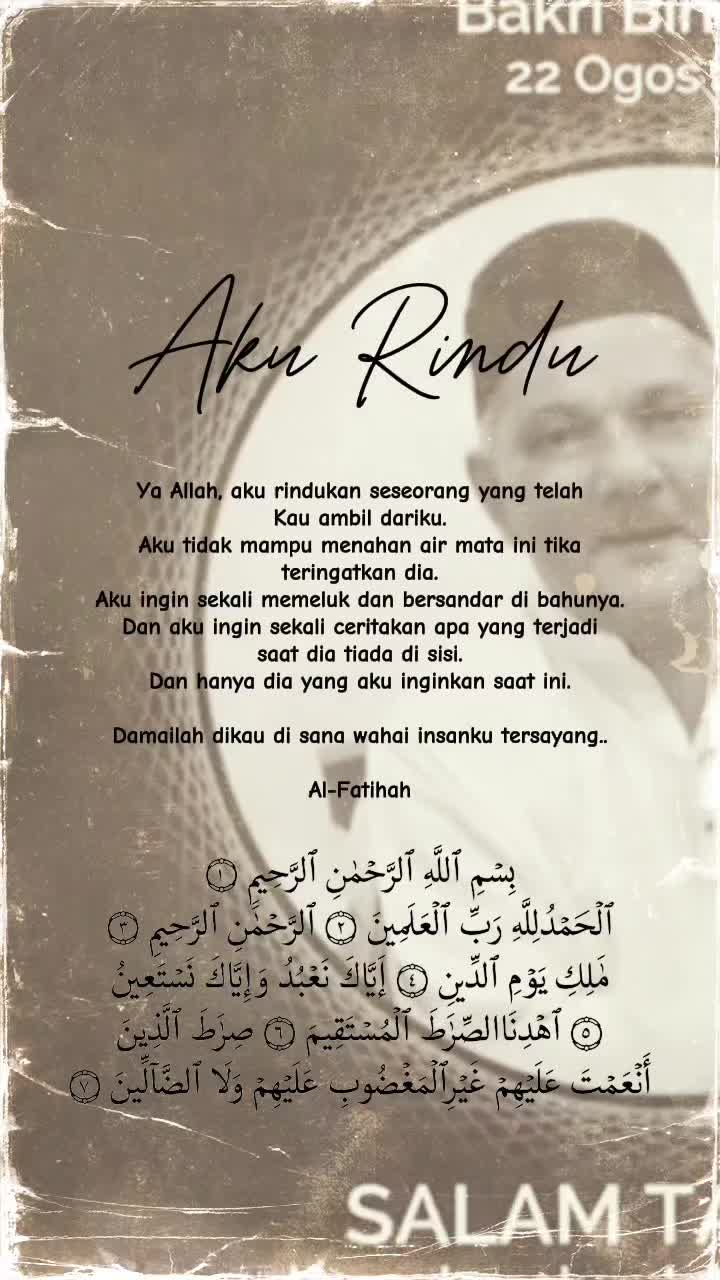 Bakri Bin
22 Ogos
Aku Rindu
Ya Allah, aku rindukan seseorang yang telah
Kau ambil dariku.
Aku tidak mampu menahan air mata ini tika
teringatkan dia.
Aku ingin sekali memeluk dan bersandar di bahunya.
Dan aku ingin sekali ceritakan apa yang terjadi
saat dia tiada di sisi.
Dan hanya dia yang aku inginkan saat ini.
Damailah dikau di sana wahai insanku tersayang..
Al-Fatihah
بِسْمِ ٱللَّهِ ٱلرَّحْمَٰنِ ٱلرَّحِيمِ ١
ٱلْحَمْدُلِلَّهِ رَبِّ ٱلْعَلَمِينَ ٢ ٱلرَّحْمَٰنِ ٱلرَّحِيمِ ٣
مَٰلِكِ يَوْمِ ٱلدِّينِ ٤ إِيَّاكَ نَعْبُدُ وَإِيَّاكَ نَسْتَعِينُ
٥ ٱهْدِنَاالصِّرَٰطَ ٱلْمُسْتَقِيمَ ٦ صِرَٰطَ ٱلَّذِينَ
أَنْعَمْتَ عَلَيْهِمْ غَيْرِٱلْمَغْضُوبِ عَلَيْهِمْ وَلَا ٱلضَّآلِّينَ ٧
SALAM TA